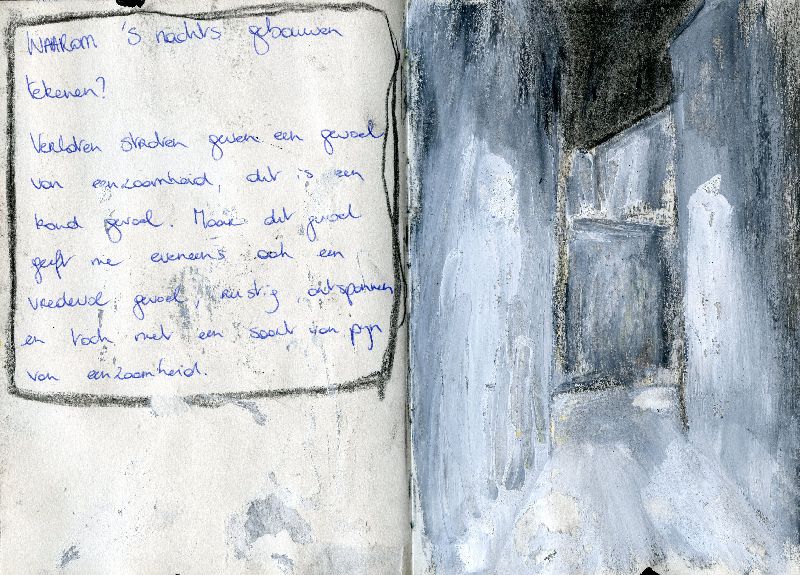 WAAROM 's nachts gebouwen
tekenen?
Verloren straten geven een gevoel
van eenzaamheid, dit is een
koud gevoel. Maar dit gevoel
geeft me eveneens ook een
vredevol gevoel, rustig ontspannen
en toch met een soort van pijn
van eenzaamheid.